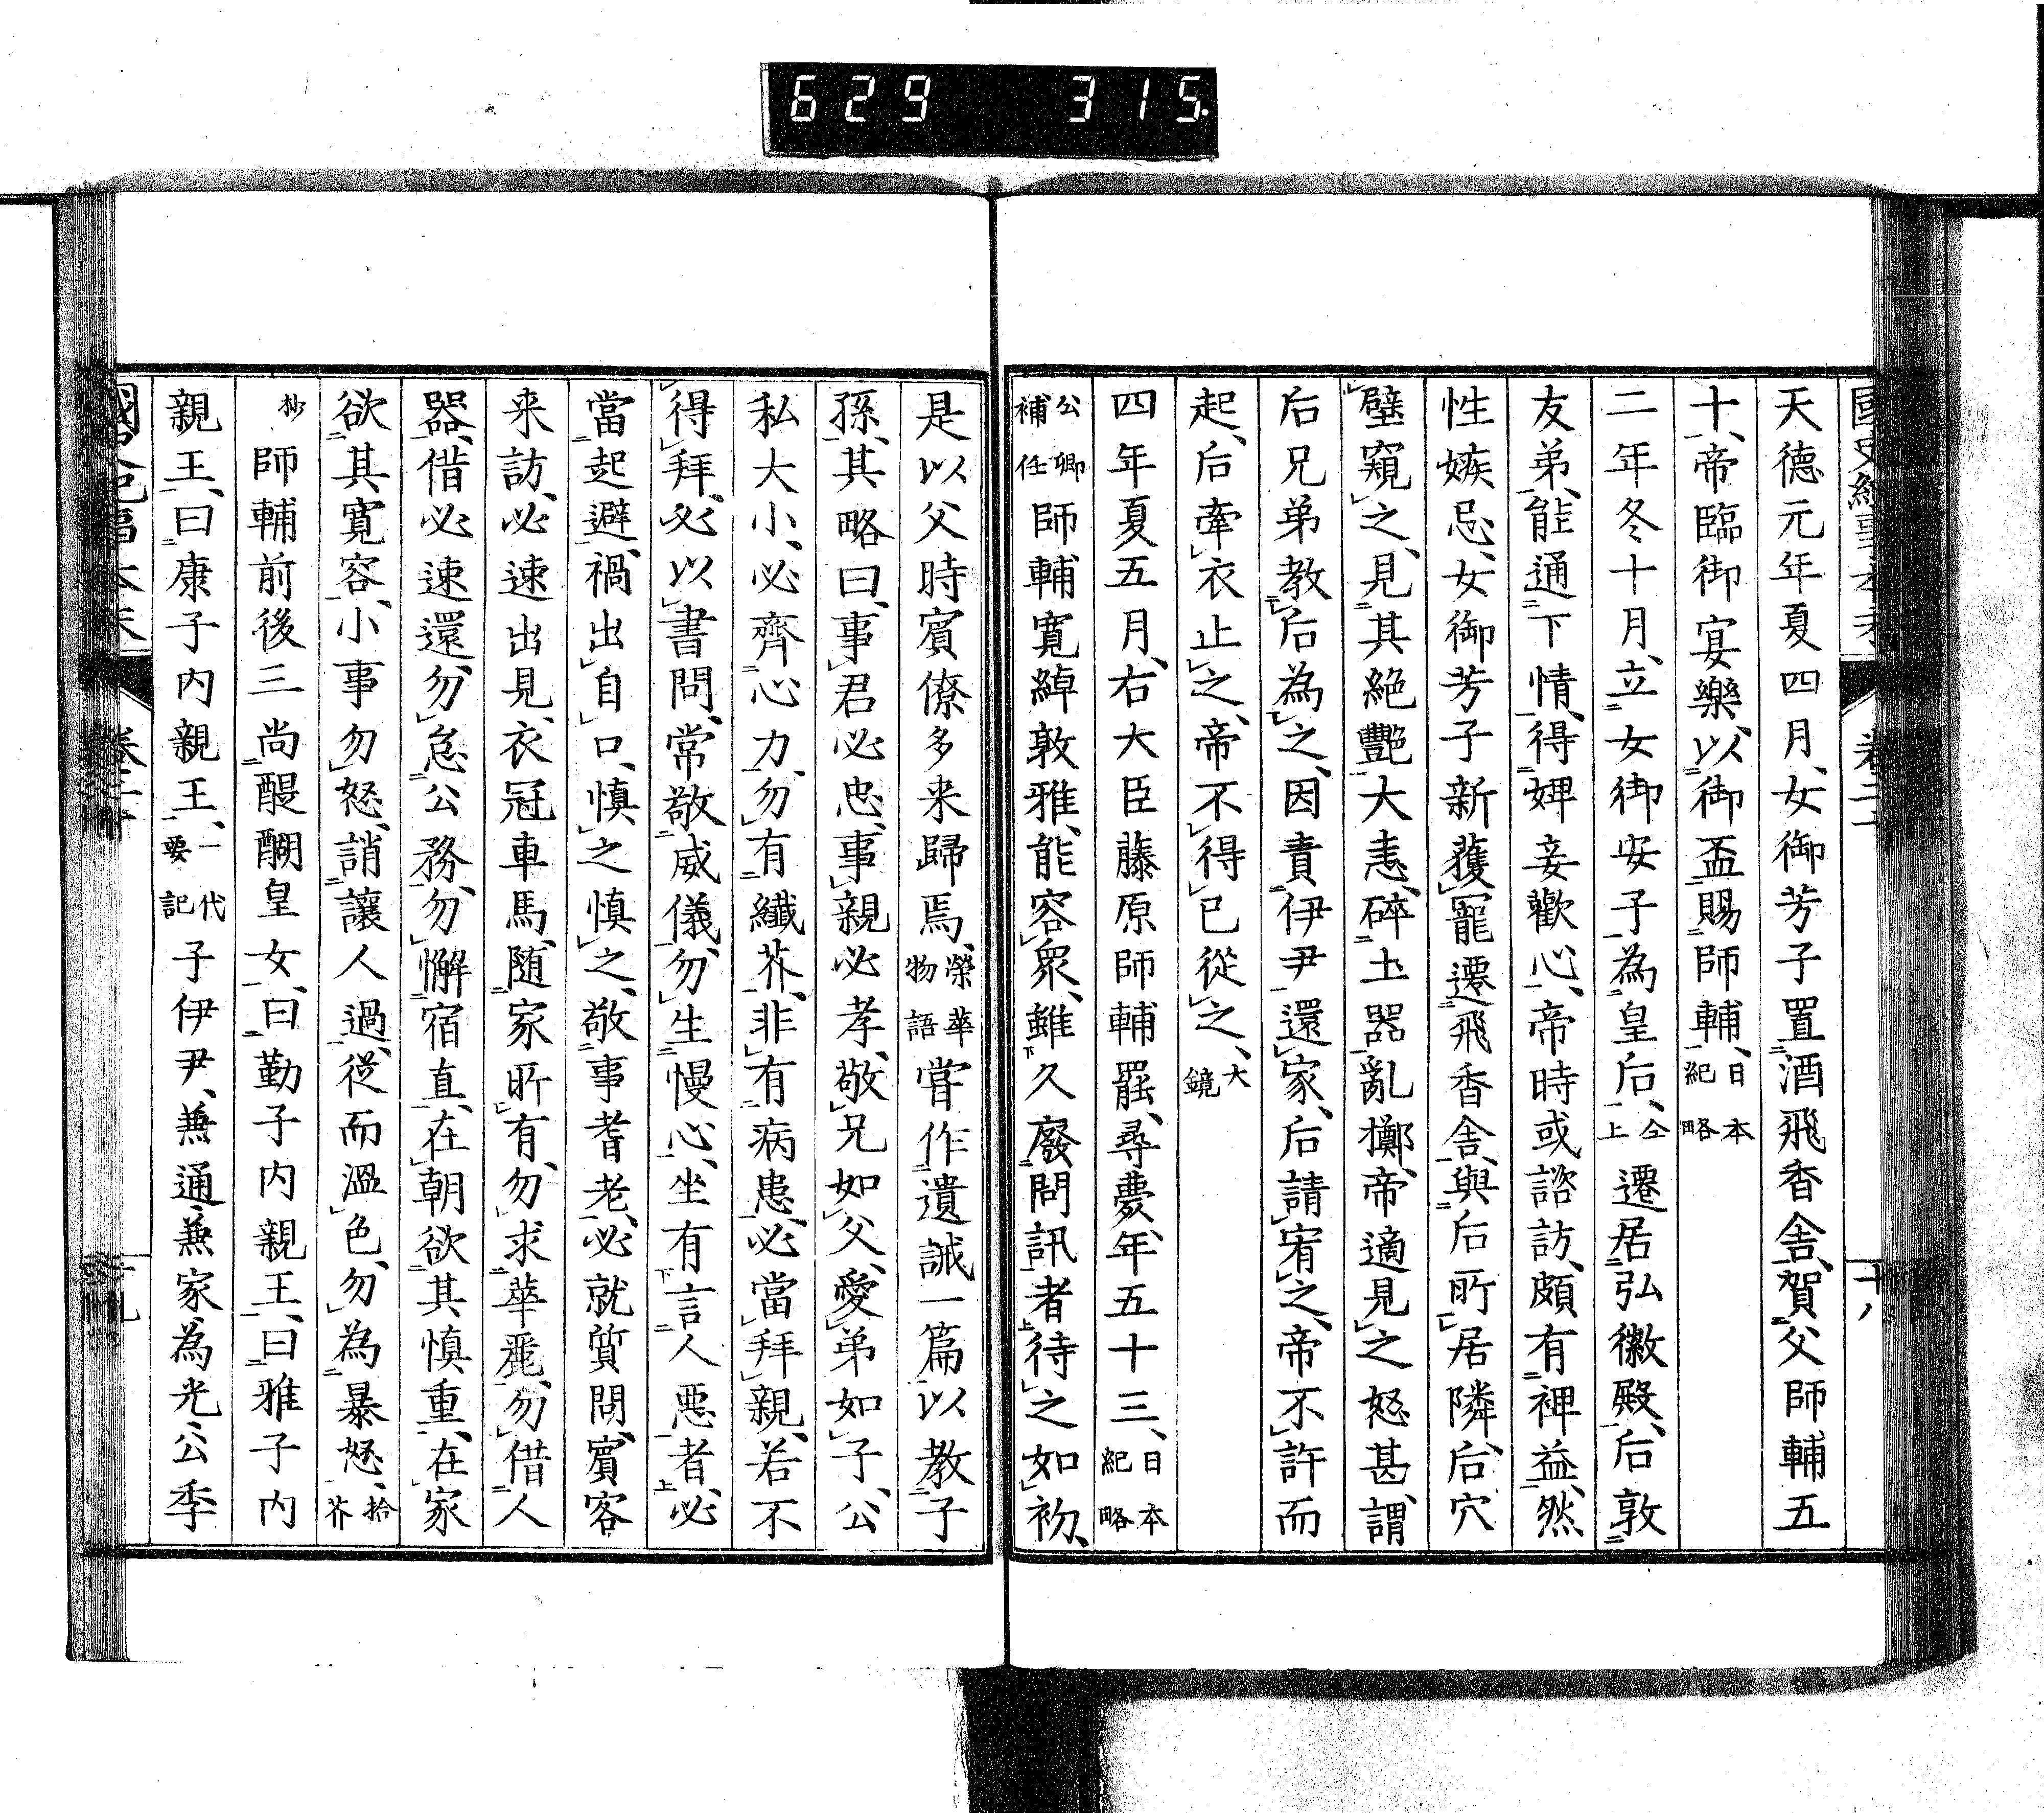 629 315
天德元年夏四月、女御芳子置酒飛香舍、賀父師輔五
十、帝臨御宴樂、以御盃賜師輔、日本紀略
二年冬十月、立女御安子為皇后、仝上遷居弘徽殿、后敦
友弟、能通下情、得婢妾歡心、帝時或諮訪、頗有裨益、然
性嫉忌、女御芳子新獲寵遷飛香舍、與后所居隣、后穴
壁窺之、見其絶艷大恚、碎土器亂擲、帝適見之怒甚、謂
后兄弟教后為之、因責伊尹還家、后請宥之、帝不許而
起、后牽衣止之、帝不得已從之、大鏡
四年夏五月、右大臣藤原師輔罷、尋薨、年五十三、日本紀略
公卿補任師輔寬綽敦雅、能容衆、雖久廢問訊者待之如初、
是以父時賓僚多来歸焉、榮華物語甞作遺誡一篇以教子
孫、其略曰、事君必忠、事親必孝、敬兄如父、愛弟如子、公
私大小、必齊心力、勿有纖芥、非有病患、必當拜親、若不
得拜、必以書問、常敬威儀、勿生慢心、坐有言人惡者、必
當起避、禍出自口、慎之慎之、敬事耆老、必就質問、賓客
来訪、必速出見、衣冠車馬、随家所有、勿求華麗、勿借人
器、借必速還、勿怠公務、勿懈宿直、在朝欲其慎重、在家
欲其寬容、小事勿怒、誚讓人過、從而溫色、勿為暴怒、拾芥
抄師輔前後三尚醍醐皇女、曰勤子内親王、曰雅子内
親王、曰康子内親王、一代要記子伊尹、兼通、兼家、為光、公季